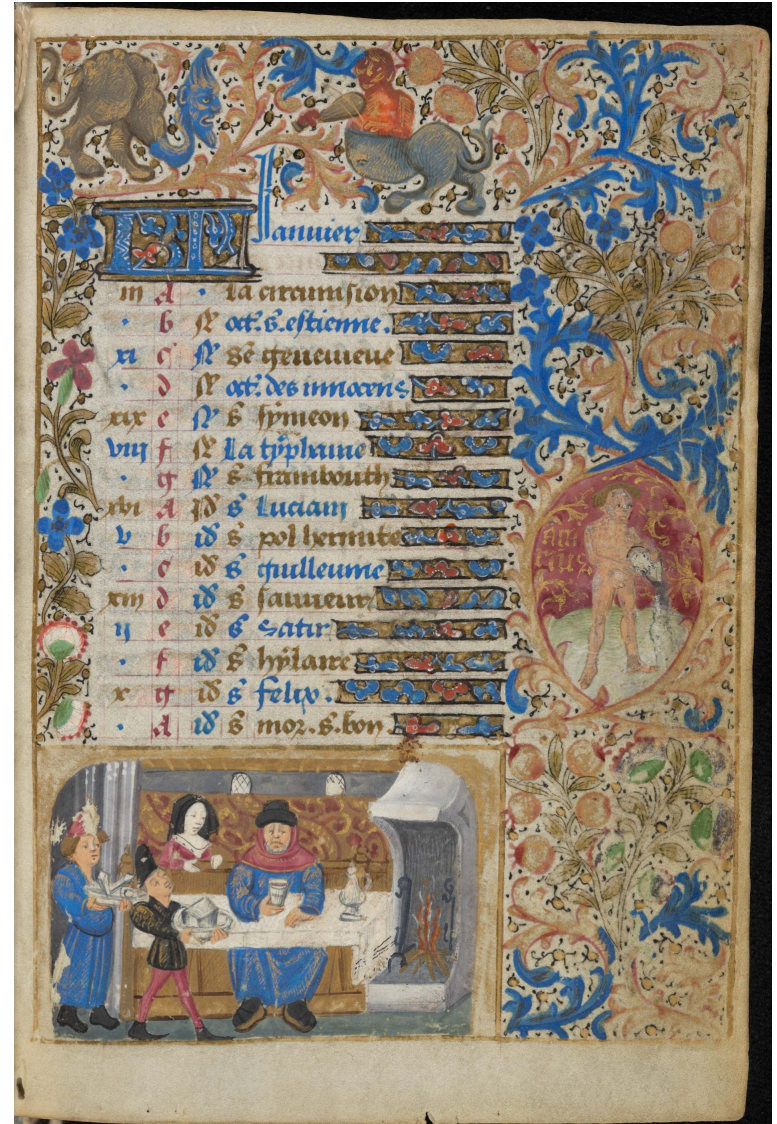 KL Januier
iii A · La circumsion
· b N̄ oct. s. estienne.
xi c N̄ sē geneuieue
· d N̄ oct. des innocens
xix e N̄ s̄ symeon
viii f N̄ La typhaine
· g N̄ s̄ frambourth
xvi A id s̄ Luciam
v b id s̄ pol hermite
· c id s̄ guilleume
xiii d id s̄ sauueur
ii e id s̄ satir
· f id s̄ hylaire
x g id s̄ felix.
· A id s̄ mor. s. bon